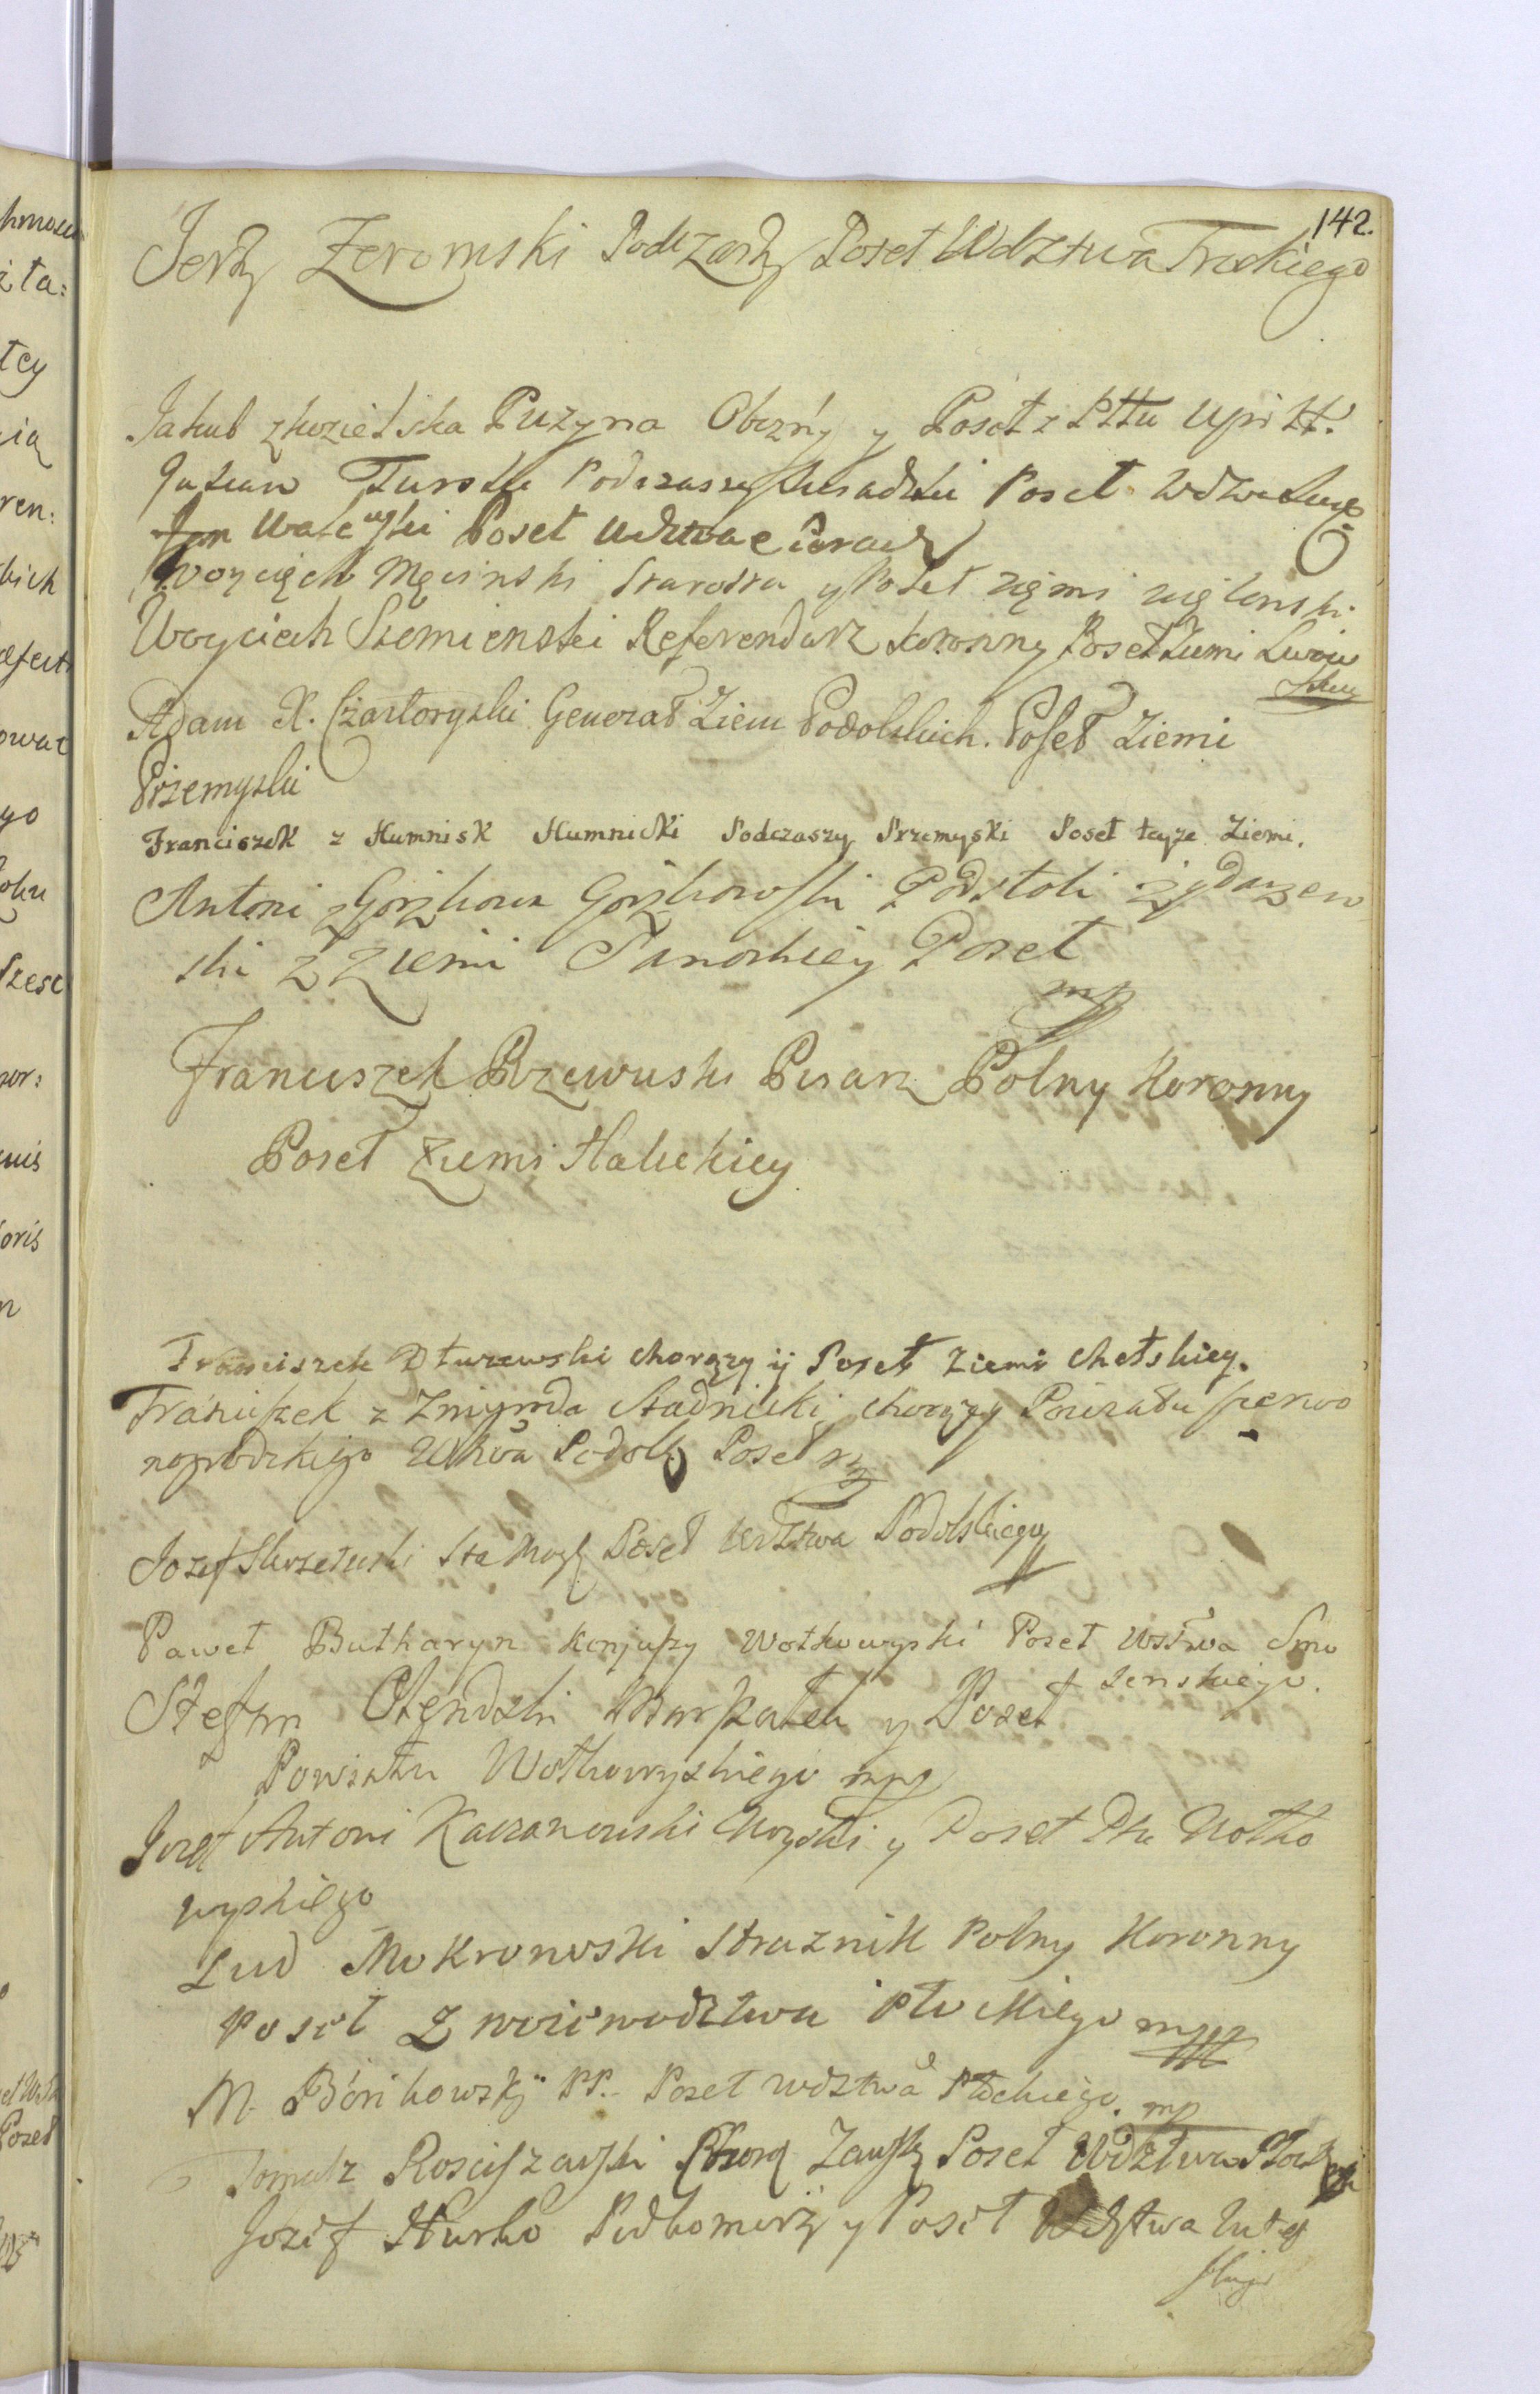 142.
Jerzy Zeromski Podczaszy Poseł Wdztwa Trockiego
Jakub z kozielska Puzyna Obozny y Poseł z Pttu Upitt.
Turski Podczaszy Poseł
Jan Walewski Poseł Wdztwa Sieradz
Woyciech Męcinski Starosta y Poseł zięmi więlunski
Woyciech Siemienski Referendarz koronny Poseł Ziemi Lwow
skiey
Adam X. Czartoryski Generał Ziem Podolskich. Poseł Ziemi
Przemyski
Franciszek z Humnisk Humnicki Podczaszy Przemyski Poseł teyze Ziemi.
Antoni z Gorzkowa Gorzkowski Podstoli Zydaczew
ski z Ziemi Sanockiey Poseł
mp
Franciszek Rzewuski Pisarz Polny Koronny
Poseł Ziemi Halickiey
Franciszek Dłuzewski chorązy ij Poseł Ziemi Chełskiey.
Franciszek z Zmigroda Stadnicki chorązy Powiatu czerwo
nogrodzkiego Wdztwa Podolg Poseł
Jozef Poseł Wdztwa Podolskiego
Paweł Butharyn konjuszy Wołkowyski Poseł Wdztwa Smo
lenskiego.
Stefan Olendzki Marszałek y Poseł
Powiatu Wołkowyskiego mpp
Jozef Antoni Kaczanowski y Poseł Ptu Wołko
wyskiego
Lud Mokronoski Straznik Polny Koronny
Poseł z woiewodztwa Płockiego mpp
M. Bonikowskj PP. Poseł wdztwa Płockiego. mp
Tomasz Rosciszewski Chorą Zawsk Poseł Wdztwa
Jozef Hurko Podkomorzy y Poseł Wdztwa Witeb
skiego